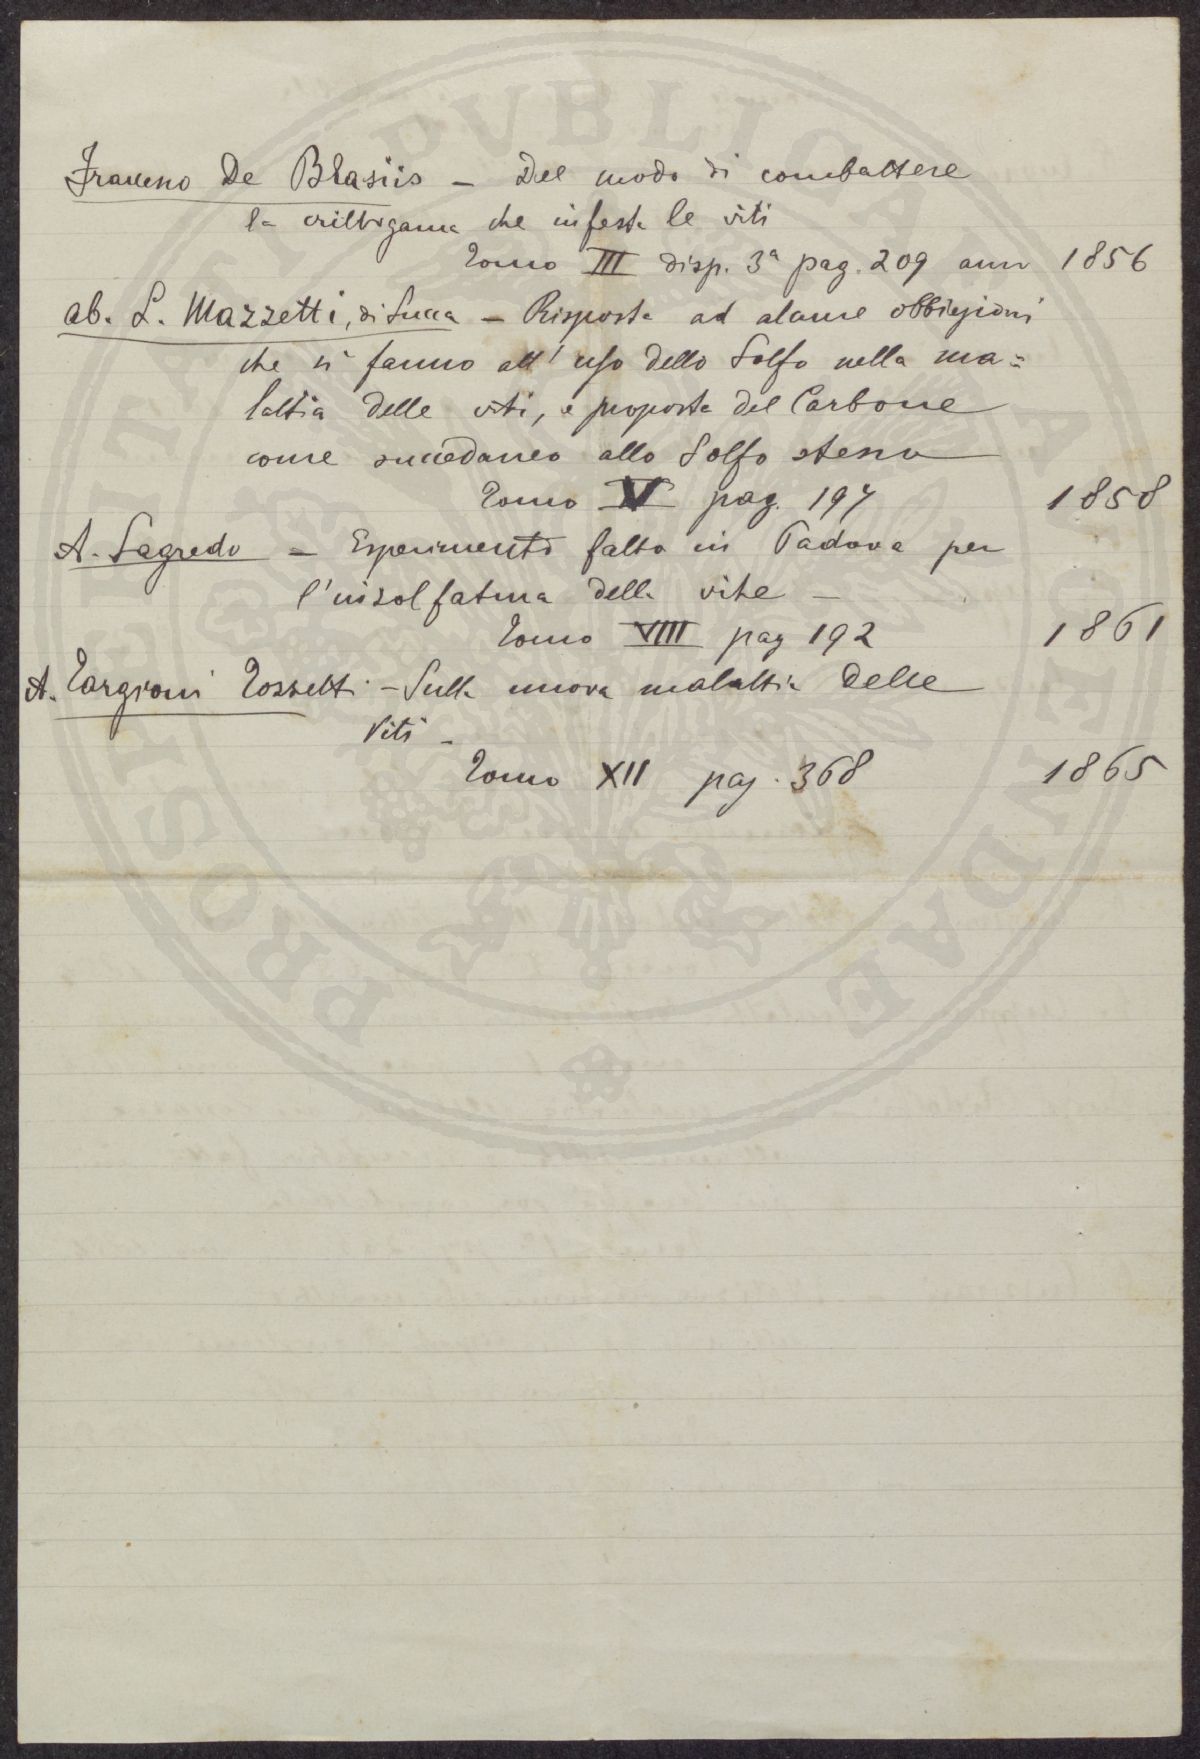 Francesco De Blasiis – Del modo di combattere
la crittogama che infesta le viti
Tomo III disp. 3ª pag. 209 anno 1856
ab. L. Mazzetti, di Lucca – Risposta ad alcune obbiezioni
che si fanno all'uso dello Solfo nella ma=
lattia delle viti, e proposta del Carbone
come succedaneo allo Solfo stesso
Tomo V pag. 197 1858
A. Sagredo – Esperimento fatto in Padova per
l'insolfatura della vite –
Tomo VIII pag 192 1861
A. Targioni Tozzetti – Sulla nuova malattia delle
Viti –
Tomo XII pag. 368 1865
PROSPERITATI PVBLICAE AVGENDAE